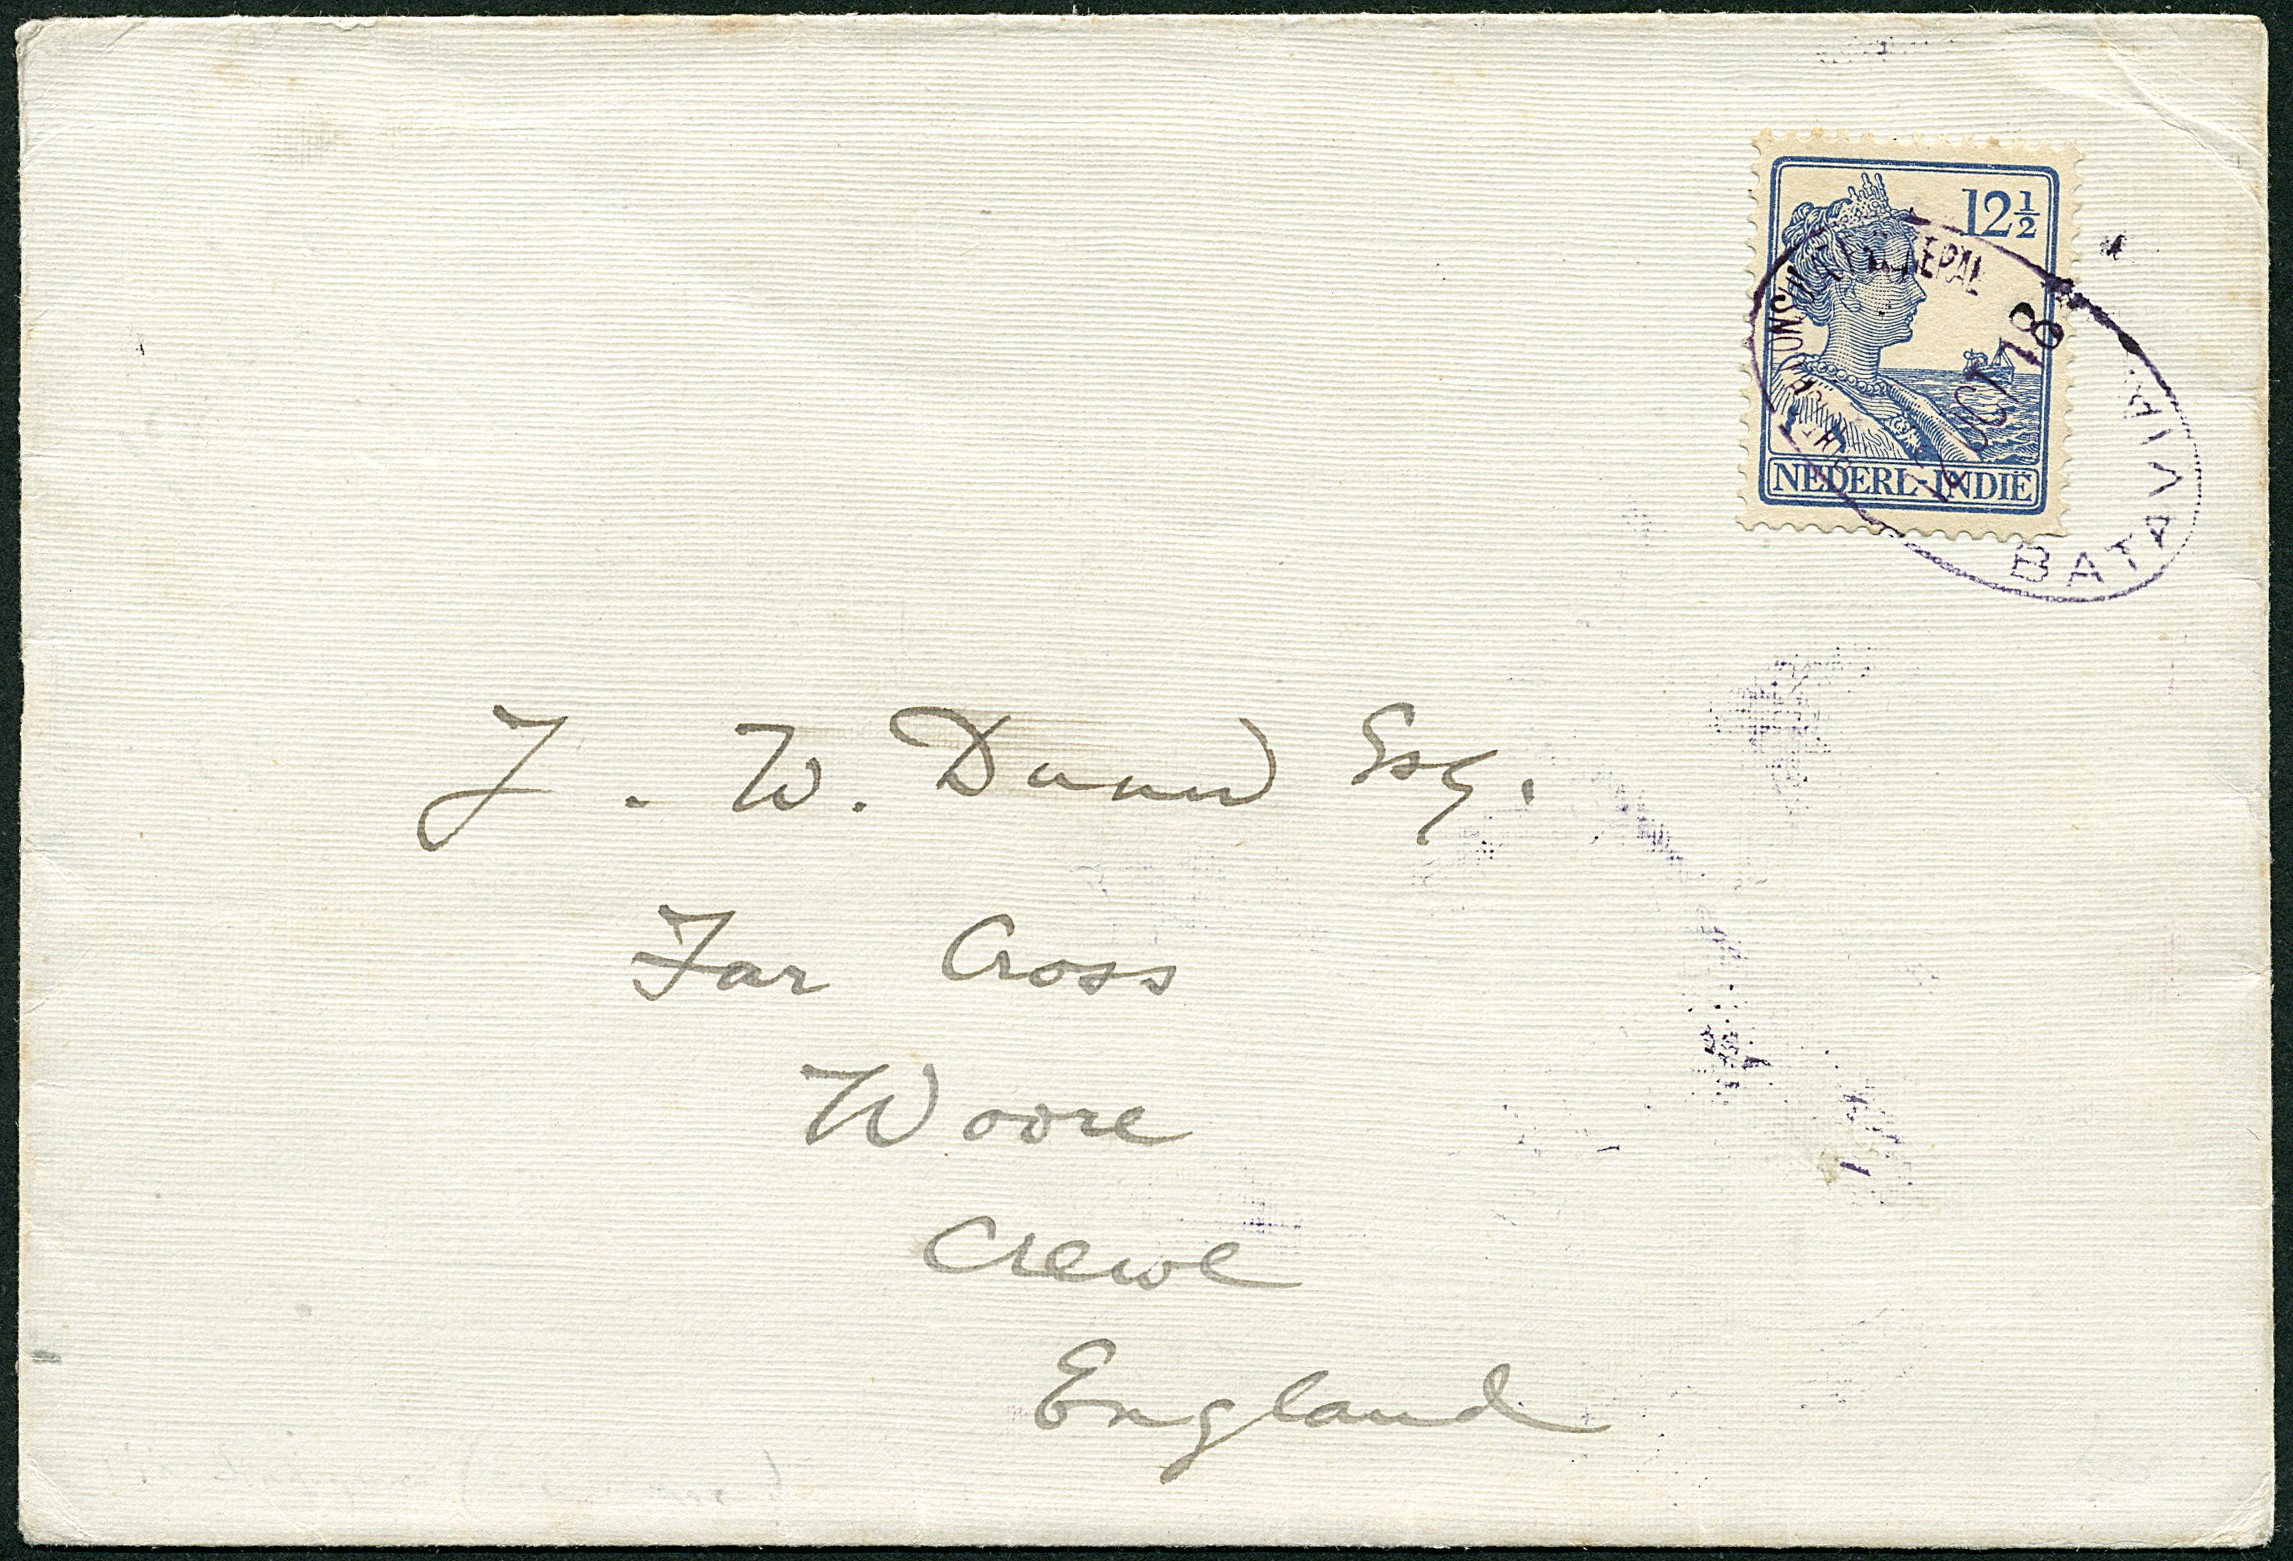 12½
NEDERL-INDIË
OCT 18
BATAVIA
J. W. Dunn Esq.
Far Cross
Woore
Crewe
England